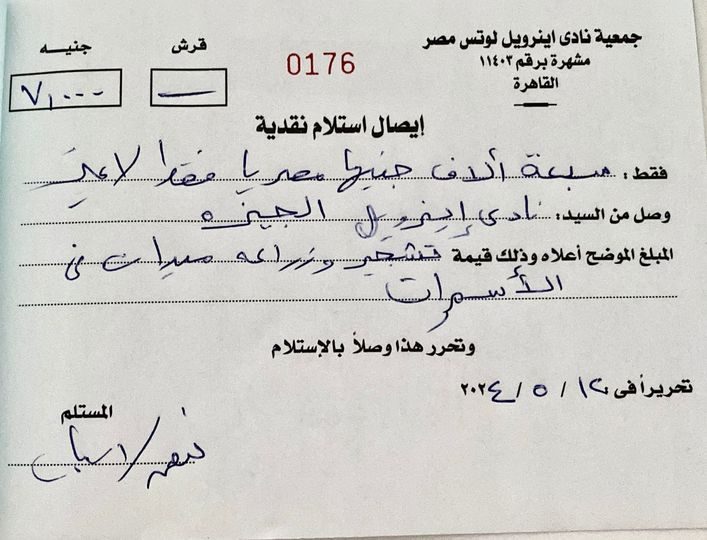 جمعية نادى اينرويل لوتس مصر
مشهرة برقم ١١٤٠٣
القاهرة
قرش جنيه
0176
— ٧,٠٠٠
إيصال استلام نقدية
فقط : سبعة ألاف جنيها مصريا فقط لا غير
وصل من السيد: نادى إينرويل الجيزه
المبلغ الموضح أعلاه وذلك قيمة تشجير وزراعه ميدان فى
الأسمرات
وتحرر هذا وصلاً بالإستلام
تحريراً فى ١٢ / ٥ / ٢٠٢٤
المستلم